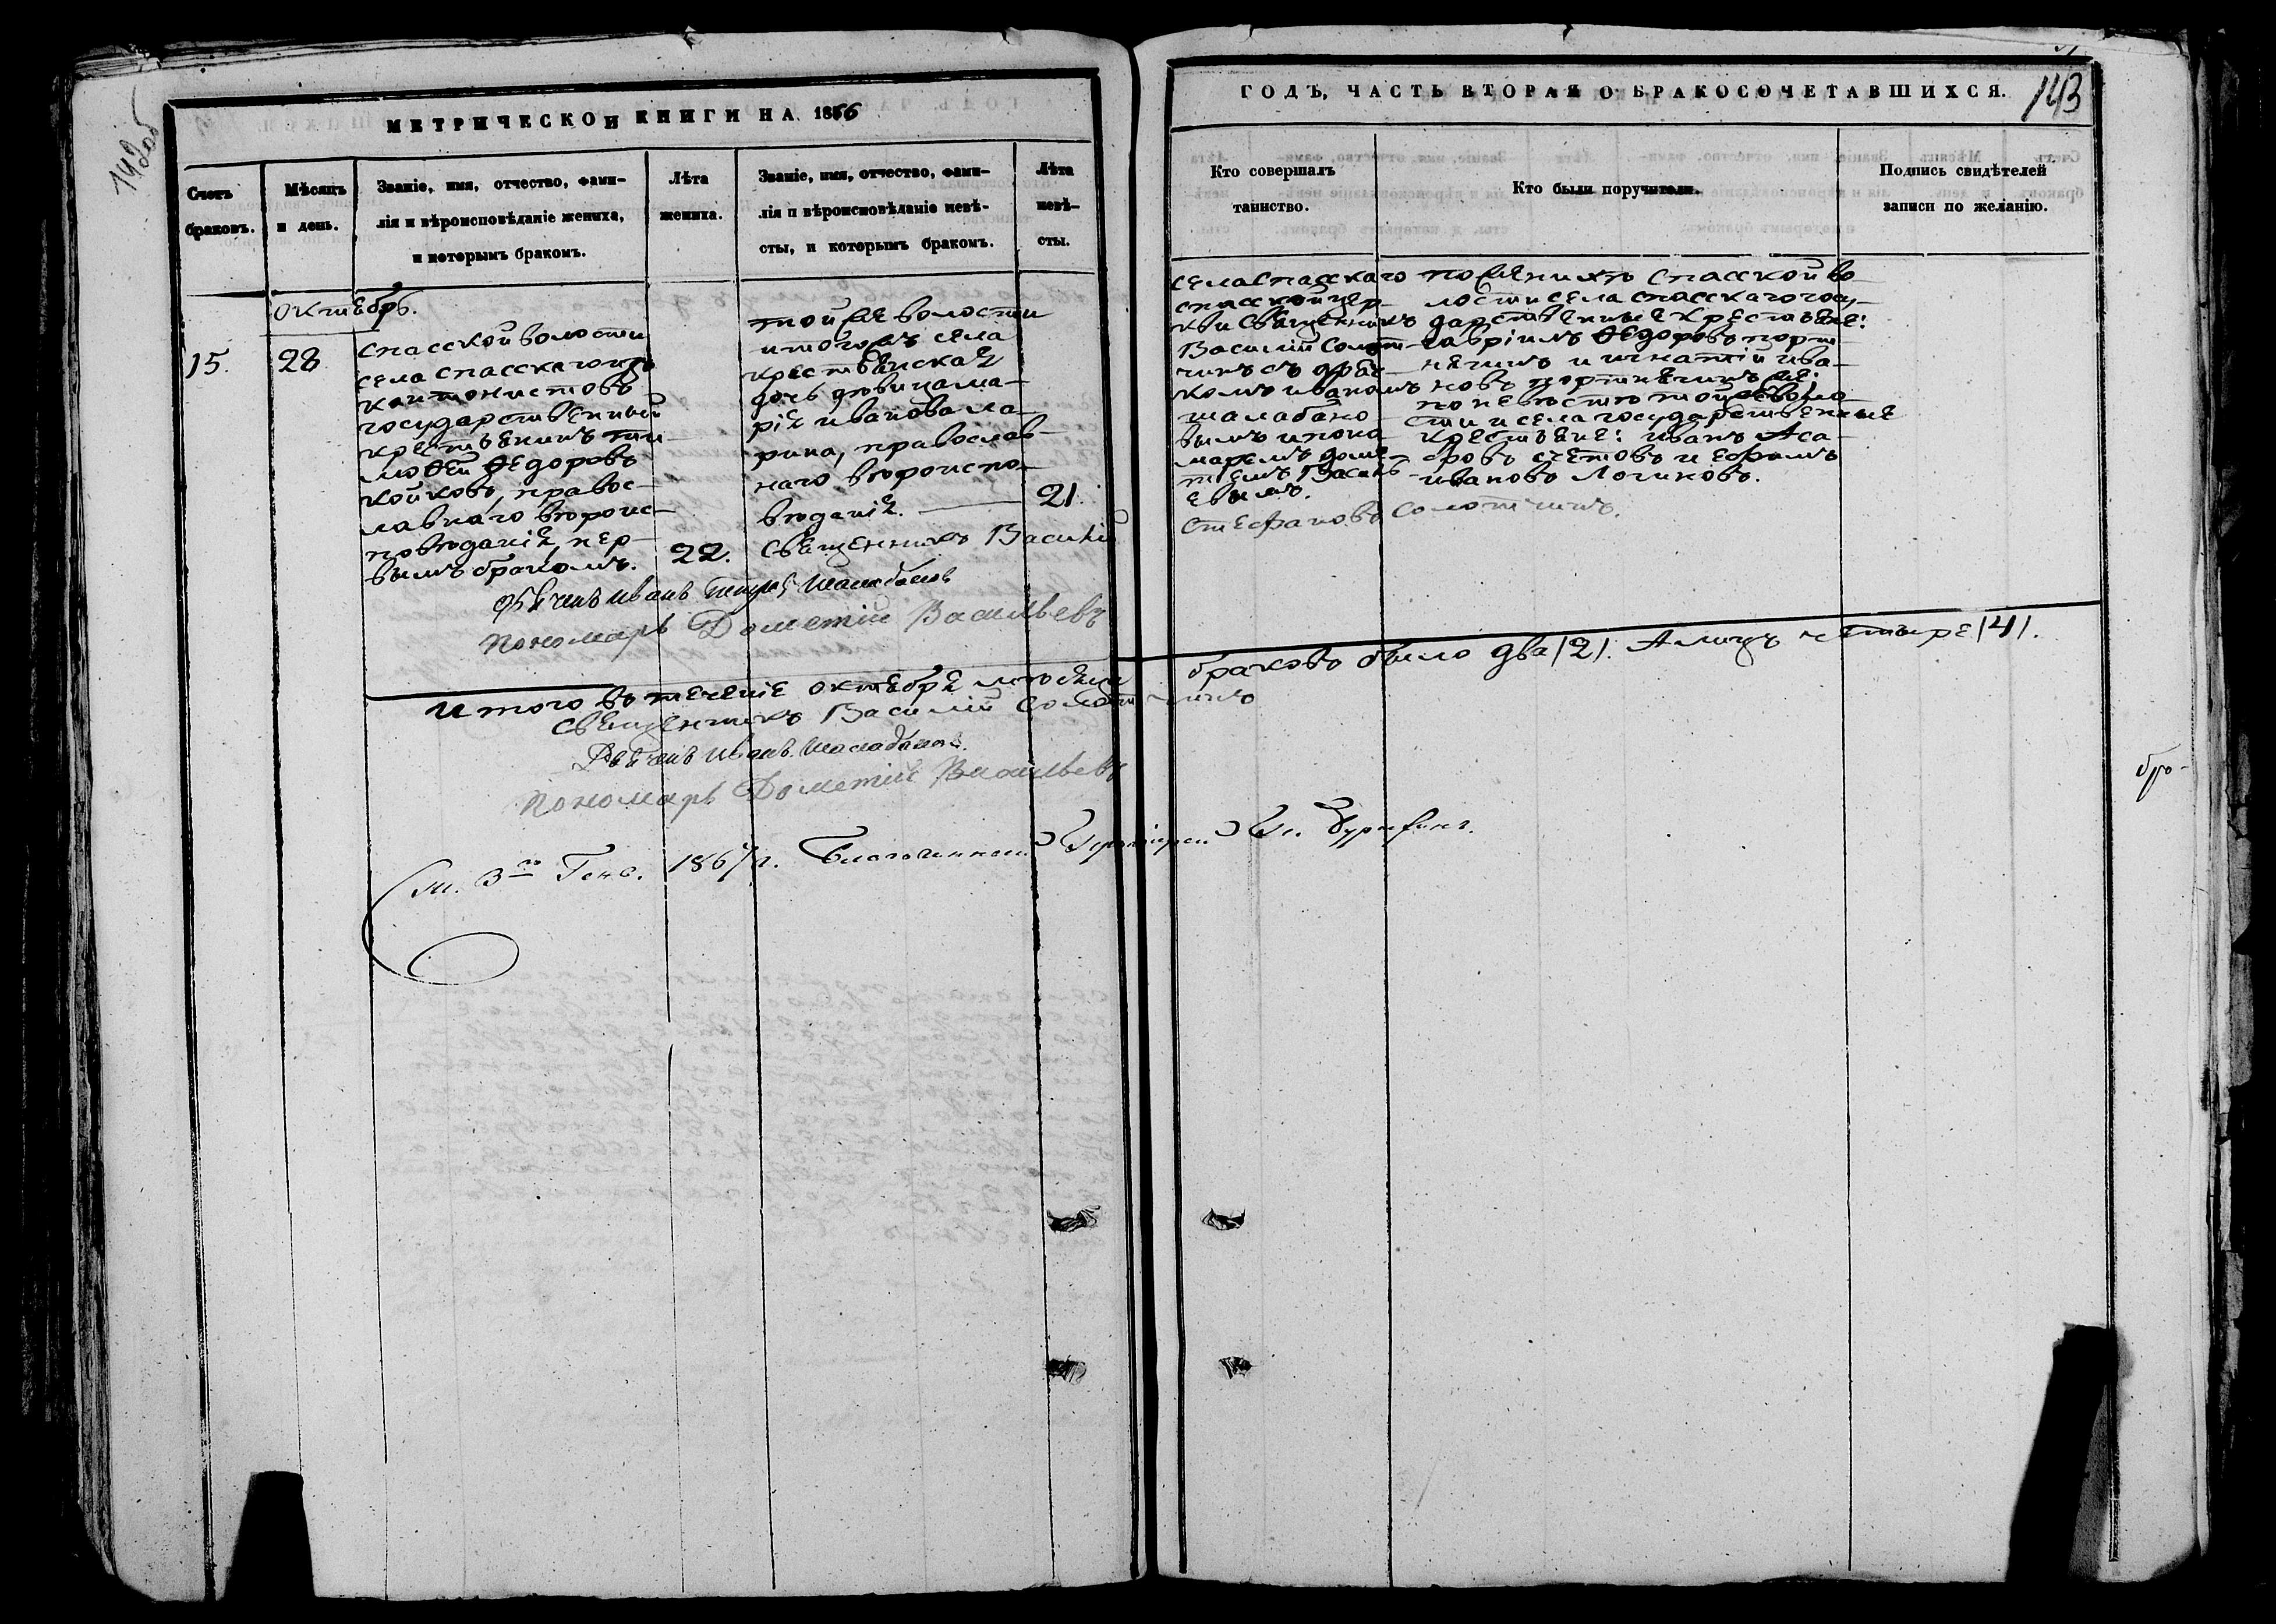 142об
МЕТРИЧЕСКОЙ КНИГИ НА 1866
Счетъ браковъ.
Мѣсяцъ и день.
Званіе, имя, отчество, фами-
лія и вѣроисповѣданіе жениха,
и которымъ бракомъ.
Лѣта
жениха.
Званіе, имя, отчество, фами-
лія и вѣроисповѣданіе невѣ-
сты, и которымъ бракомъ.
Лѣта
невѣ-
сты.
Октябрь.
15.
28
Спасской волости
села Спасскаго изъ
кантонистовъ
государственный
крестьянинъ Ти-
моѳей Ѳедоровъ
Койковъ, правос-
лавнаго вѣроис-
повѣданія, пер-
вымъ бракомъ.
22.
той же волости
и того жъ села
крестьянская
дочь дѣвица Ма-
рія Иванова Ла-
рина, православ-
наго вѣроиспо-
вѣданія.
21.
Священникъ Василій
Стефановъ Солотчинъ.
Дьячекъ Иванъ Шалабановъ
Пономарь Дометій Васильевъ
Итого въ теченіе октября мѣсяца
браковъ было два /2/. А лицъ четыре /4/.
Священникъ Василій Солотчинъ
Дьячекъ Иванъ Шалабановъ.
Пономарь Дометій Васильевъ
См. 3го Генв. 1867 г. Благочинный
ГОДЪ, ЧАСТЬ ВТОРАЯ О БРАКОСОЧЕТАВШИХСЯ.
143
Кто совершалъ
таинство.
Кто были поручители.
Подпись свидѣтелей
записи по желанію.
села Спасскаго
Спасской цер-
кви Священникъ
Василій Солот-
чинъ съ дьяч-
комъ Иваномъ
Шалабано-
вымъ и поно-
маремъ Доме-
тіемъ Василь-
евымъ.
по женихѣ Спасской во-
лости села Спасскаго госу-
дарственные крестьяне:
Гавріилъ Ѳедоровъ Порт-
нягинъ и Игнатій Ива-
новъ Портнягинъ же:
по невѣстѣ той же воло-
сти и села государственные
крестьяне: Иванъ Аса-
фовъ Счетовъ и Ефимъ
Ивановъ Логиновъ.